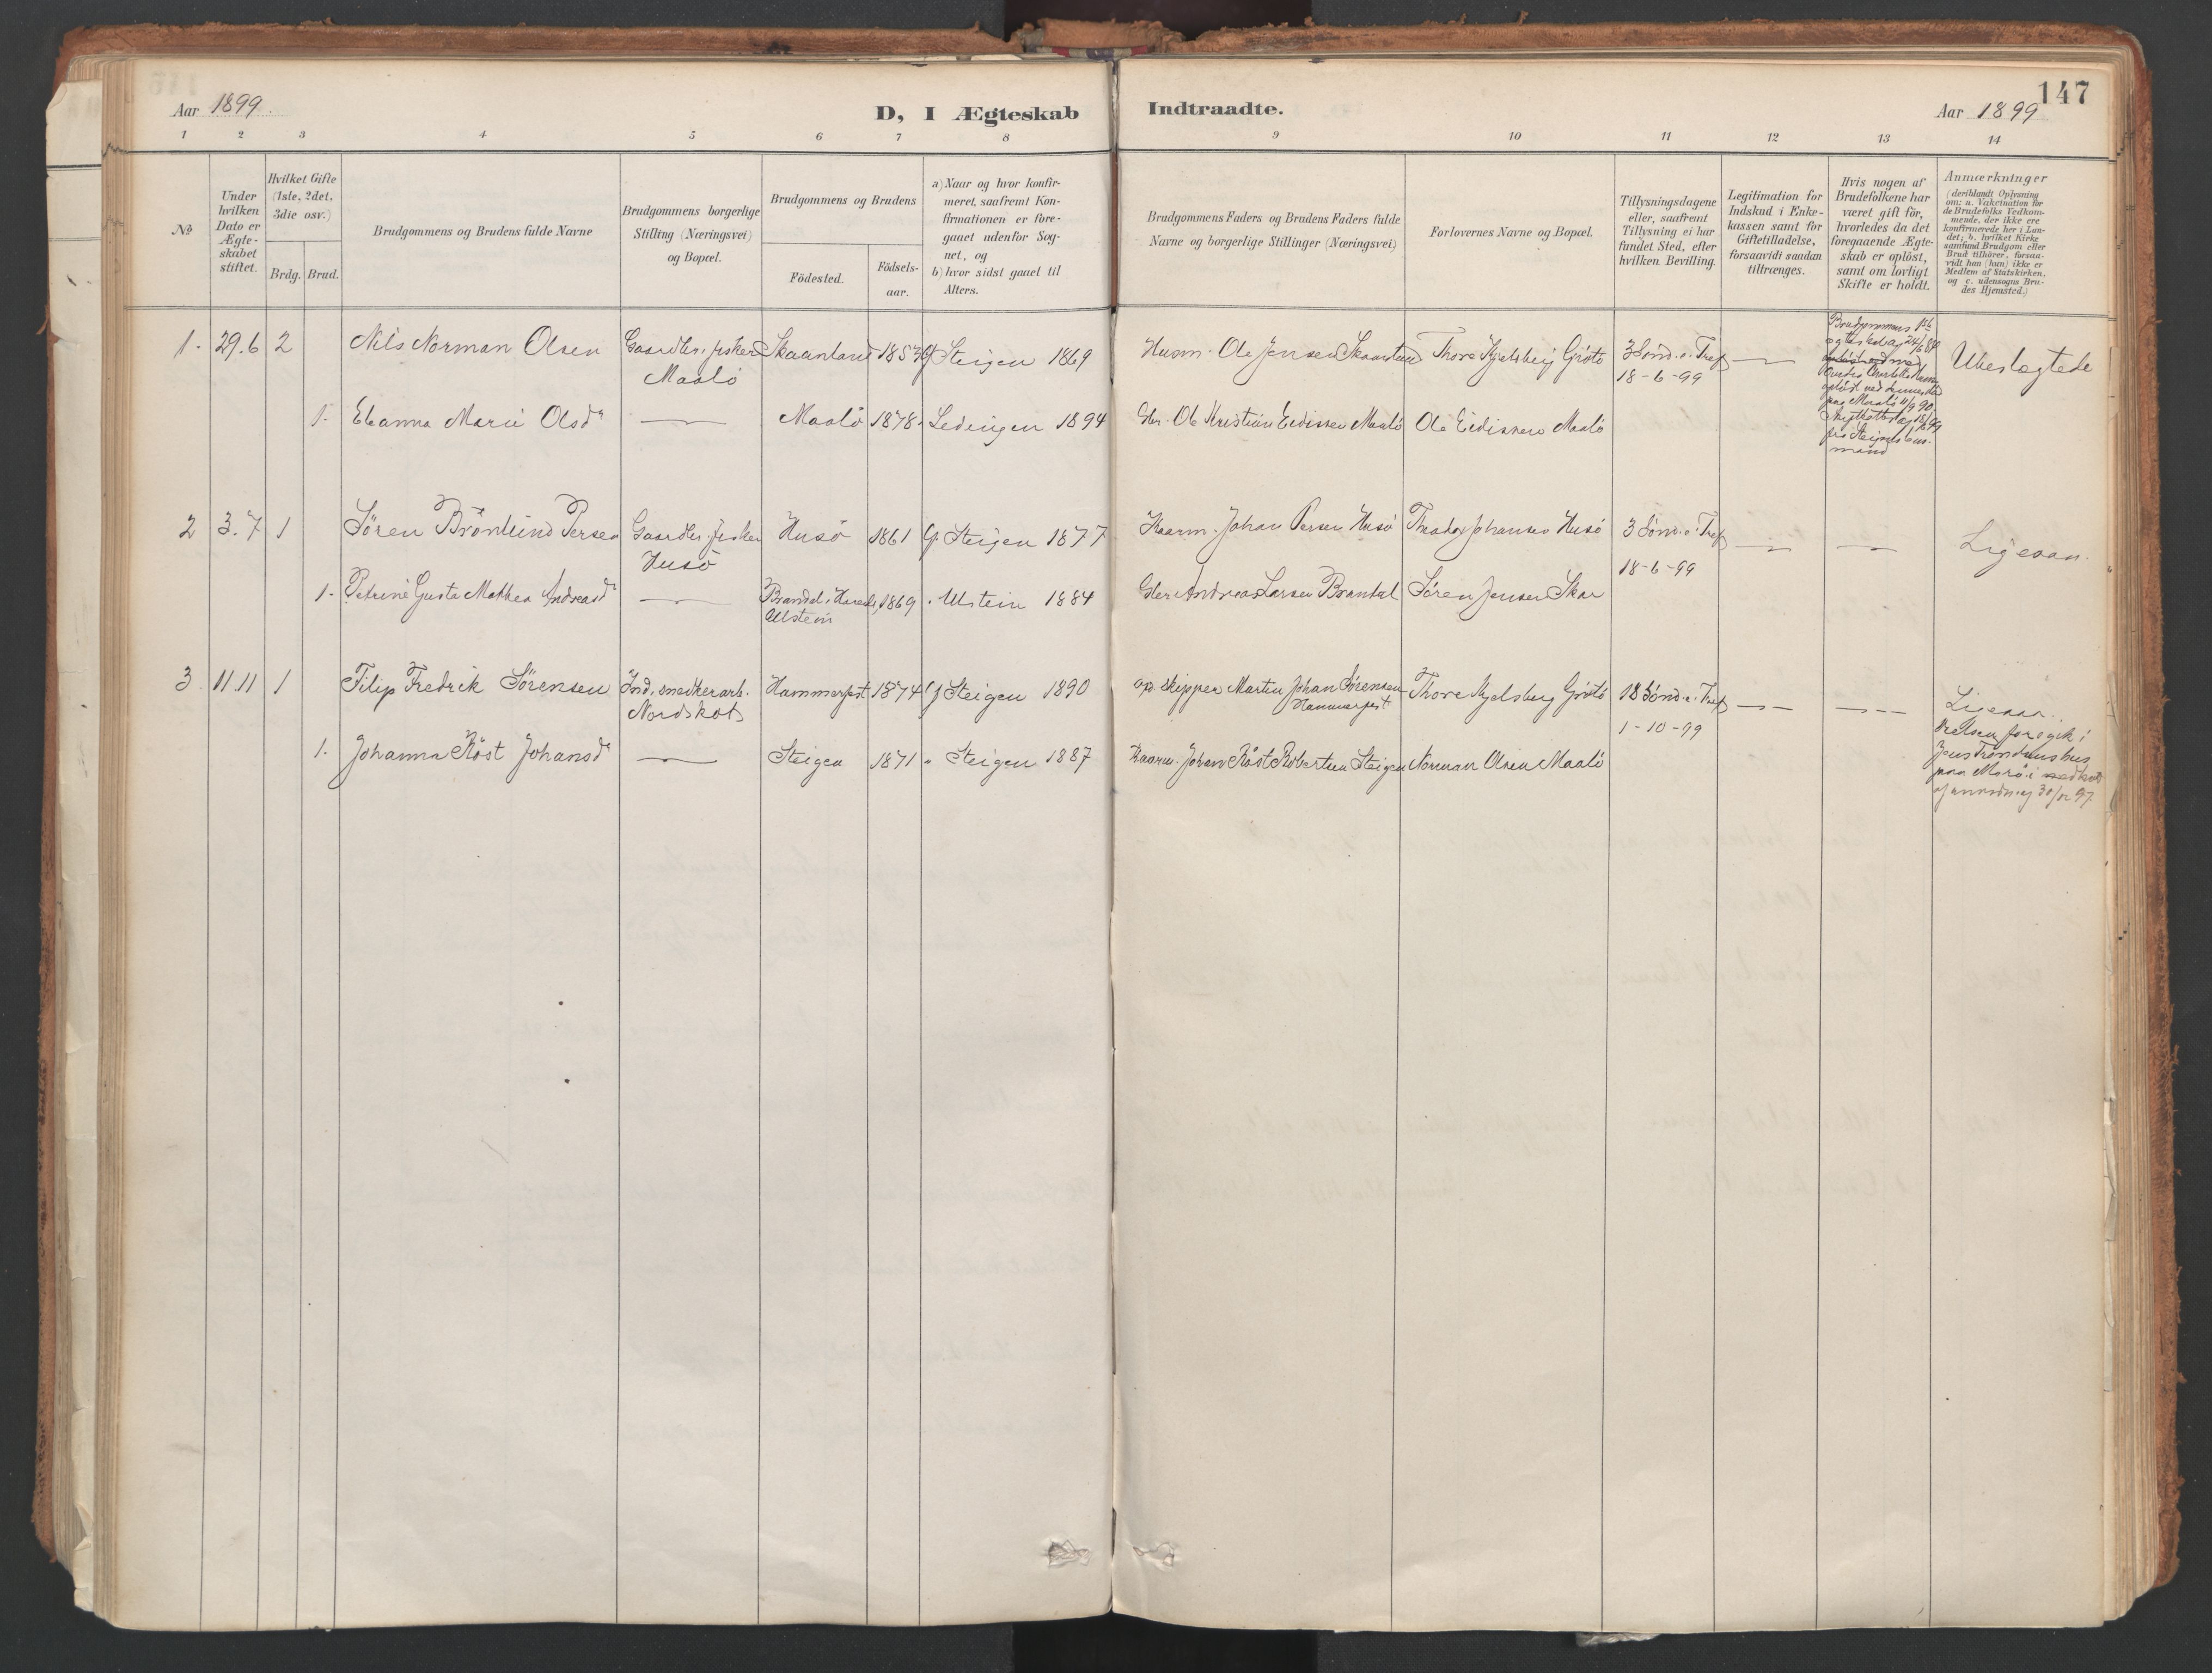 147
Aar 1899
D, I Ægteskab
Indtraadte.
Aar 1899
1 2 3 4 5 6 7 8 9 10 11 12 13 14
№
Under
hvilken
Dato er
Ægte-
skabet
stiftet.
Hvilket Gifte
(1ste, 2det,
3die osv.)
Brdg. Brud.
Brudgommens og Brudens fulde Navne
Brudgommens borgerlige
Stilling (Næringsvei)
og Bopæl.
Brudgommens og Brudens
Födested.
Födsels-
aar.
a) Naar og hvor konfir-
meret, saafremt Kon-
firmationen er fore-
gaaet udenfor Sog-
net, og
b) hvor sidst gaaet til
Alters.
Brudgommens Faders og Brudens Faders fulde
Navne og borgerlige Stillinger (Næringsvei)
Forlovernes Navne og Bopæl.
Tillysningsdagene
eller, saafremt
Tillysning ei har
fundet Sted, efter
hvilken Bevilling.
Legitimation for
Indskud i Enke-
kassen samt for
Giftetilladelse,
forsaavidt saadan
tiltrænges.
Hvis nogen af
Brudefolkene har
været gift för,
hvorledes da det
foregaaende Ægte-
skab er oplöst,
samt om lovligt
Skifte er holdt.
Anmærkninger
(deriblandt Oplysning
om: a. Vakcination for
de Brudefolks Vedkom-
mende, der ikke ere
konfirmerede her i Lan-
det; b. hvilket Kirke-
samfund Brudgom eller
Brud tilhörer, forsaa-
vidt han (hun) ikke er
Medlem af Statskirken,
og c. udensogns Bru-
des Hjemsted.)
1. 29.6 2 Nils Norman Olsen Gaardbr. fisker Skaanland 1853 Steigen 1869 Husm. Ole Jensen Skaanland Thore Kjelsberg Grøtö 3 Sönd. e. Tref Ubeslægtede
Maalö
18-6-99
Brudgommens 1ste
Maalö 11/9 90
1. Maria Olsdr Maalö 1878 Lødingen 1894 Gbr. Ole Kristian Eidissen Maalö Ole Eidissen Maalö
mand
2 3.7 1 Søren Brönlund Persen Gaardbr. fisker Husö 1861 Steigen 1877 Kaarm. Johan Persen Husö Johansen Husö 3 Sönd. e. Tref Ligesaa.
Husö
18-6-99
1. Petrine Gusta Mathea Andreasdr 1869 Ulstein 1884 Gbr. Andreas Larsen Brandal Søren Jensen Skar
Ulstein
3. 11.11 1 Filip Fredrik Sørensen Ind. snedkerarb. Hammerfest 1874 Steigen 1890 Skipper Martin Johan Sørensen Thore Kjelsberg Grøtö 18 Sönd. e. Tref Ligesaa.
Nordskot
Hammerfest
1-10-99
Vielsen foregik i
1. Johanna Røst Johansdr Steigen 1871 Steigen 1887 Kaarm. Johan Røst Robertsen Steigen Norman Olsen Maalö